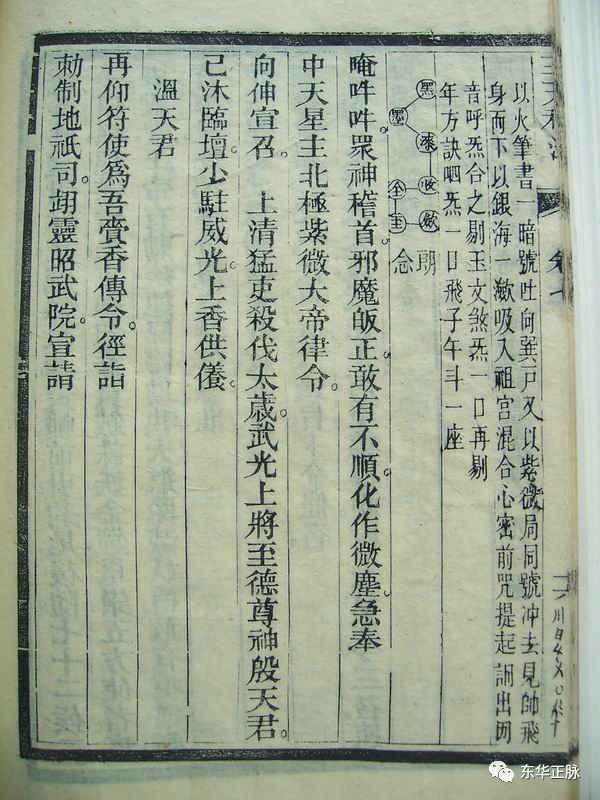 以火筆書一暗號吐向巽戸又以紫微局同號冲去見帥飛
身而下以銀海一歛吸入祖宮混合心密前咒提起
音呼炁合之剔玉文煞炁一口再剔
年方訣呬炁一口飛子午斗一座
朗念
唵吽吽眾神稽首邪魔皈正敢有不順化作微塵急奉
中天星主北極紫微大帝律令。
向伸宣召。上清猛吏殺伐太歲。武光上將至德尊神殷天君。
已沐臨壇。少駐威光。上香供儀。
溫天君
再仰符使為吾賫香傳令。徑詣
勑制地祇司。翊靈昭武院。宣請
卷七
东华正脉